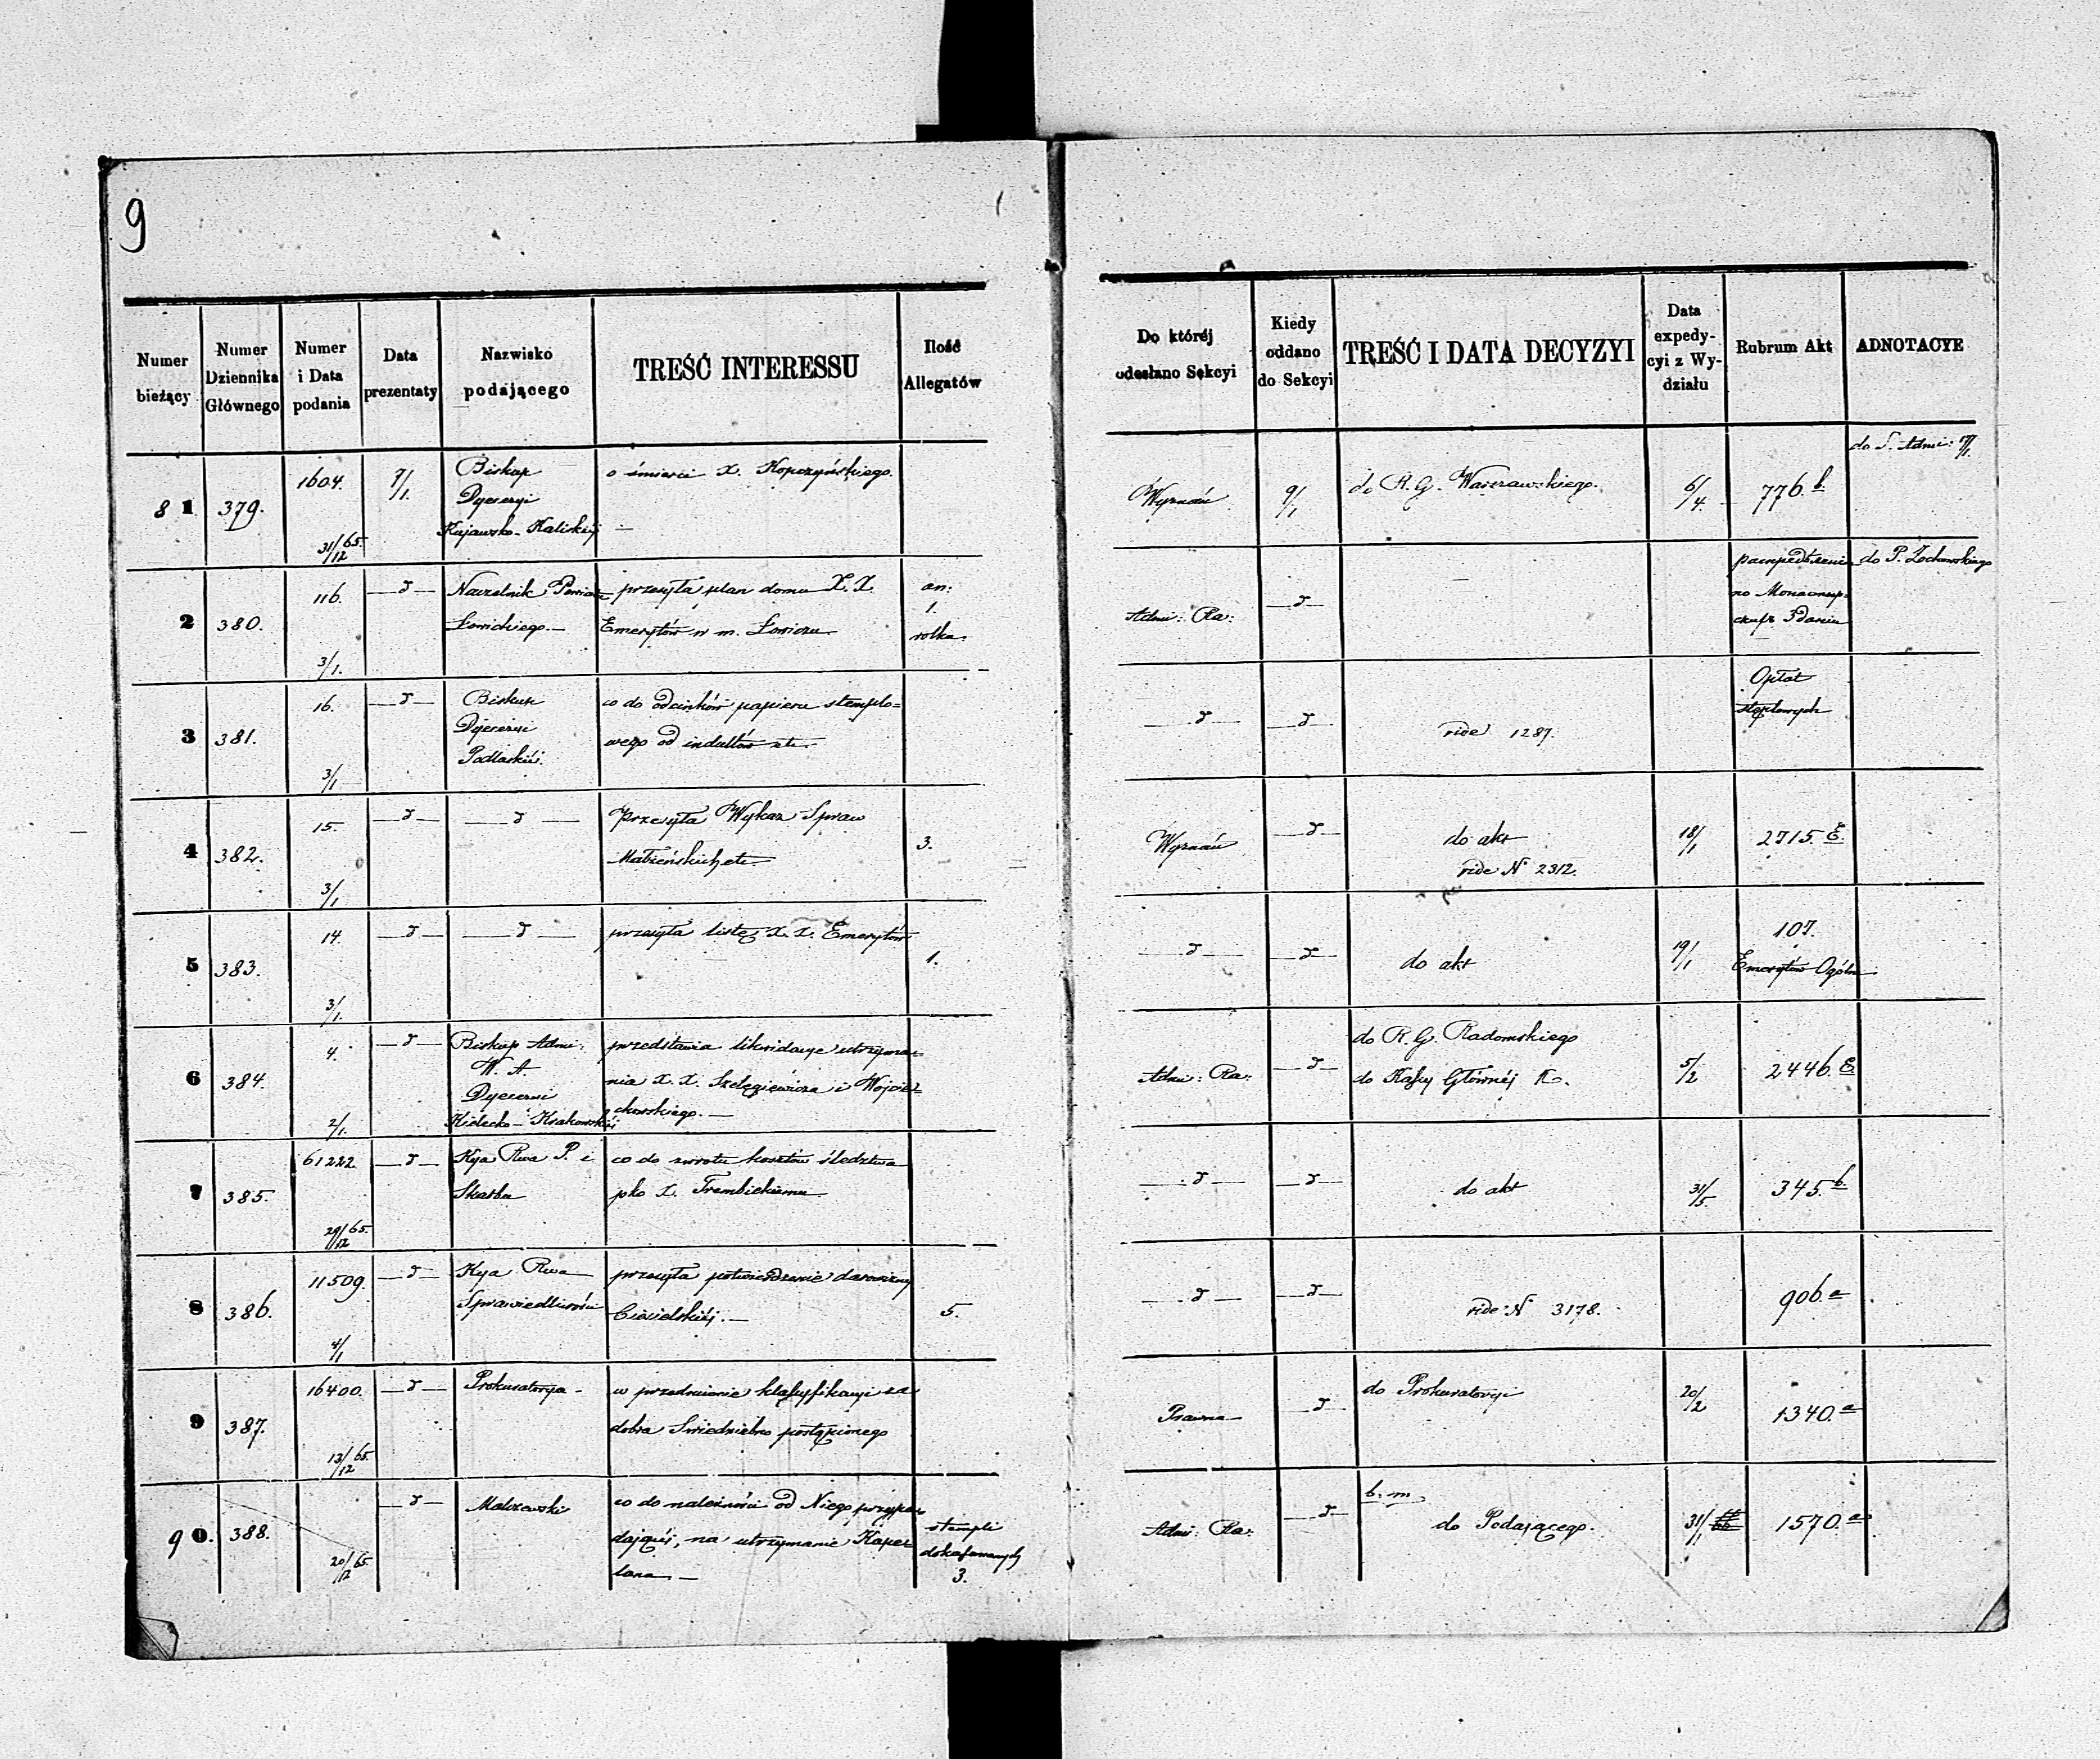 9
Numer bieżący
Numer Dziennika Głównego
Numer i Data podania
Data prezentaty
Nazwisko podającego
TREŚĆ INTERESSU
Ilość Allegatów
Do któréj odesłano Sekcyi
Kiedy oddano do Sekcyi
TREŚĆ I DATA DECYZYI
Data expedycyi z Wydziału
Rubrum Akt
ADNOTACYE
81
379.
1604.
31/12 65.
7/1.
Biskup
Dyecezyi
Kujawsko-Kaliskiéj
o śmierci X. Kopczyńskiego.
Wyznań
9/1
do R. G. Warszawskiego.
6/4.
776.b
do S. Admi: 17/1.
2
380.
116.
3/1.
—d—
Naczelnik Powiatu
Łowickiego.—
przesyła plan domu X. X.
Emerytów w m. Łowiczu
an:
1.
rolka.
Admi: Ra:
—d—
do P.
3
381.
16.
3/1
—d—
Biskup
Dyecezyi
Podlaskiéj.
co do odcinków papieru stemplo=
wego od indultów etc.
—d—
—d—
vide 1287.
Opłat
stęplowych
4
382.
15.
3/1
—d—
—d—
Przesyła Wykaz Spraw
Małżeńskich etc.
3.
Wyznań
—d—
do akt
vide N 2312.
18/1
2715. E.
5
383.
14.
3/1.
—d—
—d—
przesyła listę X. X. Emerytów
1.
—d—
—d—
do akt
19/1
107.
Emerytów Ogóln.
6
384.
4.
2/1.
—d—
Biskup Admi:
W. A.
Dyecezyi
Kielecko-Krakowskiéj
przedstawia likwidacye utrzyma=
nia X. X. Szelęgiewicza i Wojcie=
chowskiego.—
Admi: Ra:
—d—
do R. G. Radomskiego
do Kassy Głównéj K.
5/2
2446. E
7
385.
61222.
29/12 65.
—d—
Kya Rwa P. i
Skarbu
co do zwrotu kosztów śledztwa
pko X. Trembickiemu
—d—
—d—
do akt
31/5.
345.b.
8
386.
11509.
4/1
—d—
Kya Rwa
Sprawiedliwości
przesyła potwierdzenie darowizny
Ciesielskiéj.—
5.
—d—
—d—
vide N 3178.
906.a
9
387.
16400.
13/12 65.
—d—
Prokuratorya -
w przedmiocie klassyfikacyi za
dobra Świedziebno postąpionego
Prawna
—d—
do Prokuratoryi
20/2
1340.a
90.
388.
20/12 65
—d—
Malczewski
co do należności od Niego przypa=
dającéj, na utrzymanie Kape=
lana.—
stempli
dokassowanych
3.
Admi: Ra:
—d—
b. m.
do Podającego.
31/1
1570.a